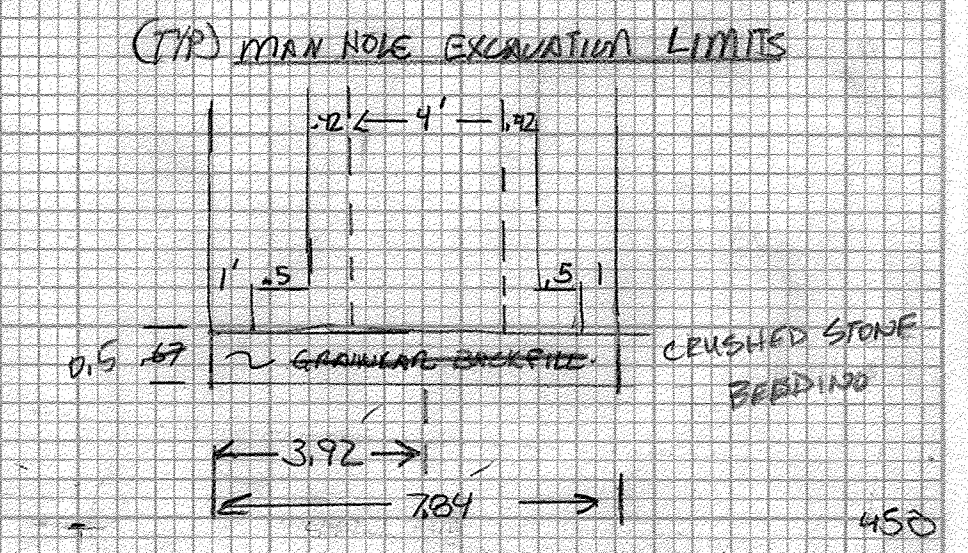 (TYP) MAN HOLE EXCAVATION LIMITS
.42 4' .42
1' .5 .5 1
0.5 .67 GRANULAR BACKFILL.
CRUSHED STONE
BEEDING
3.92
7.84
450